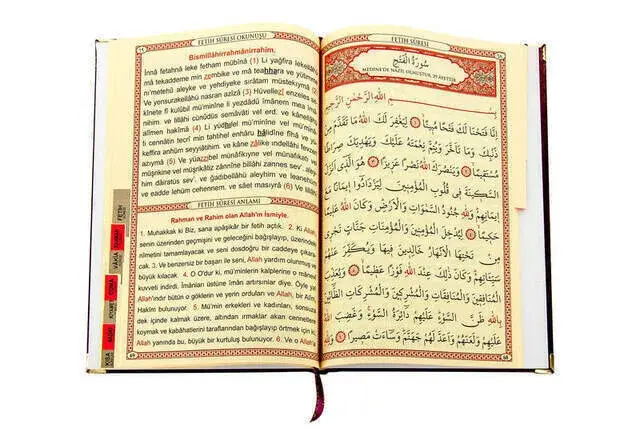 FETİH SÛRESİ OKUNUŞU
Bismillâhirrahmânirrahîm.
İnnâ fetahnâ leke fetham mübînâ (1) Li yağfira lekellâhü
mâ tekaddeme min zembike ve mâ teahhara ve yütimme
ni'metehû aleyke ve yehdiyeke sırâtam müstekıymâ (2)
Ve yensurakellâhü nasran azîzâ (3) Hüvellezî enzeles se
kînete fî kulûbil mü'minîne li yezdâdû îmânem mea îmâ
nihim ve lillâhi cünûdüs semâvâti vel erd. ve kânellâhü
alîmen hakîmâ (4) Li yüdhilel mü'minîne vel mü'minâ
ti cennâtin tecrî min tahtihel enhâru hâlidîne fîhâ ve yü
keffira anhüm seyyiâtihim. ve kâne zâlike indellâhi fevzen
azıymâ (5) Ve yüazzibel münâfikıyne vel münâfikâti vel
müşrikîne vel müşrikâtiz zânnîne billâhi zannes sev'. aley
him dâiratüs sev'. ve ğadıbellâhü aleyhim ve leanehüm
ve eadde lehüm cehennem. ve sâet masıyrâ (6) Ve lillâ
FETİH SÛRESİ ANLAMI
Rahman ve Rahim olan Allah'ın İsmiyle.
1. Muhakkak ki Biz, sana apâşikar bir fetih açtık. 2. Ki Allah
senin üzerinden geçmişini ve geleceğini bağışlayıp, üzerindeki
nîmetini tamamlayacak ve seni dosdoğru bir caddeye çıkara
cak. 3. Ve benzersiz bir başarı ile seni, Allah yardım olunmuş ve
büyük kılacak. 4. O O'dur ki, mü'minlerin kalplerine o mânevî
kuvveti indirdi. İmânları üstüne îmân artırsınlar diye. Öyle ya
Allah'ındır bütün o göklerin ve yerin orduları ve Allah, bir Alîm
Hakîm bulunuyor. 5. Mü'min erkekleri ve kadınları, sonsuza
dek içinde kalmak üzere, altından ırmaklar akan cennetlere
koymak ve kabahatlerini taraflarından bağışlayıp örtmek için ki,
Allah yanında bu, büyük bir kurtuluş bulunuyor. 6. Ve o Allah'ı
FETİH
VÂKIA
CUMA
KISA
FETİH SÛRESİ
سُورَةُ الْفَتْحِ
MEDİNE'DE NÂZİL OLMUŞTUR, 29 ÂYETTİR.
بِسْمِ اللهِ الرَّحْمٰنِ الرَّحِيمِ
اِنَّا فَتَحْنَا لَكَ فَتْحًا مُبِينًا ۝١ لِيَغْفِرَ لَكَ اللهُ مَا تَقَدَّمَ مِنْ
ذَنْبِكَ وَمَا تَاَخَّرَ وَيُتِمَّ نِعْمَتَهُ عَلَيْكَ وَيَهْدِيَكَ صِرَاطًا
مُسْتَقِيمًا ۝٢ وَيَنْصُرَكَ اللهُ نَصْرًا عَزِيزًا ۝٣ هُوَ الَّذِى اَنْزَلَ
السَّكِينَةَ فِى قُلُوبِ الْمُؤْمِنِينَ لِيَزْدَادُوا اِيمَانًا مَعَ
اِيمَانِهِمْ وَلِلّٰهِ جُنُودُ السَّمٰوَاتِ وَالْاَرْضِ وَكَانَ اللهُ عَلِيمًا
حَكِيمًا ۝٤ لِيُدْخِلَ الْمُؤْمِنِينَ وَالْمُؤْمِنَاتِ جَنَّاتٍ تَجْرِى
مِنْ تَحْتِهَا الْاَنْهَارُ خَالِدِينَ فِيهَا وَيُكَفِّرَ عَنْهُمْ
سَيِّئَاتِهِمْ وَكَانَ ذٰلِكَ عِنْدَ اللهِ فَوْزًا عَظِيمًا ۝٥ وَيُعَذِّبَ
الْمُنَافِقِينَ وَالْمُنَافِقَاتِ وَالْمُشْرِكِينَ وَالْمُشْرِكَاتِ الظَّانِّينَ
بِاللهِ ظَنَّ السَّوْءِ عَلَيْهِمْ دَائِرَةُ السَّوْءِ وَغَضِبَ اللهُ
عَلَيْهِمْ وَلَعَنَهُمْ وَاَعَدَّ لَهُمْ جَهَنَّمَ وَسَاءَتْ مَصِيرًا ۝٦ وَلِلّٰهِ